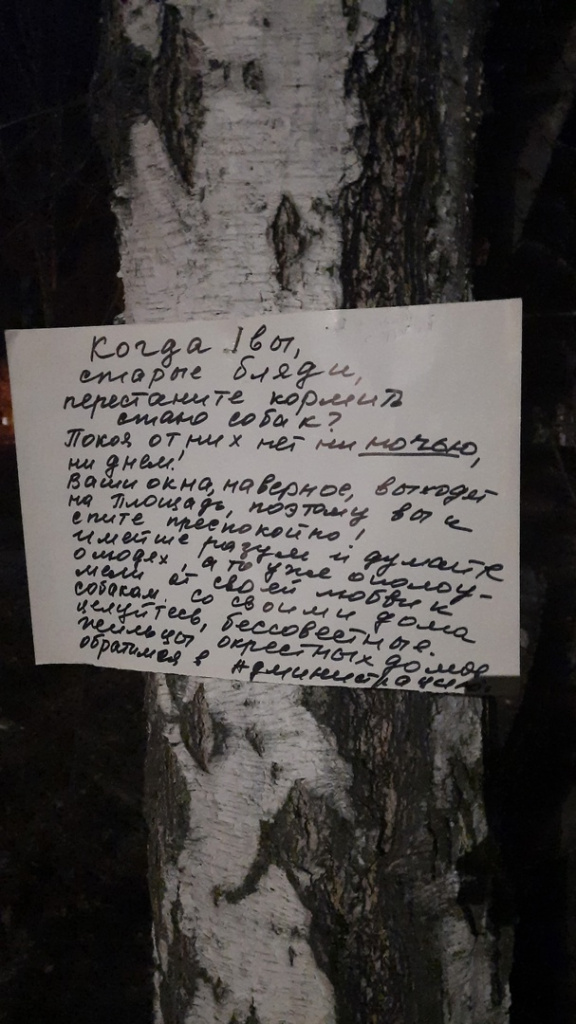 Когда вы,
старые бляди,
перестаните кормить
стаю собак?
Покоя от них нет ни ночью,
ни днем!
Ваши окна, наверное, выходят
на Площадь, поэтому вы и
спите преспокойно!
Имейте разум и думайте
о людях, а то уже ополоу-
мели от своей любви к
собакам. Со своими дома
целуйтесь, бессовестные.
Жильцы окрестных домов
обратимся в Администрацию.